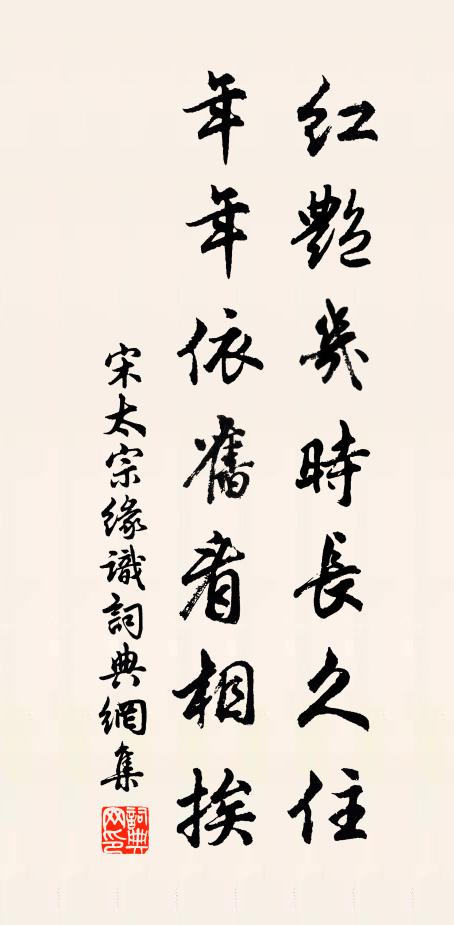 紅艷幾時長久住
年年依舊看相挨
宋太宗緣識詞典網集
詞典网印